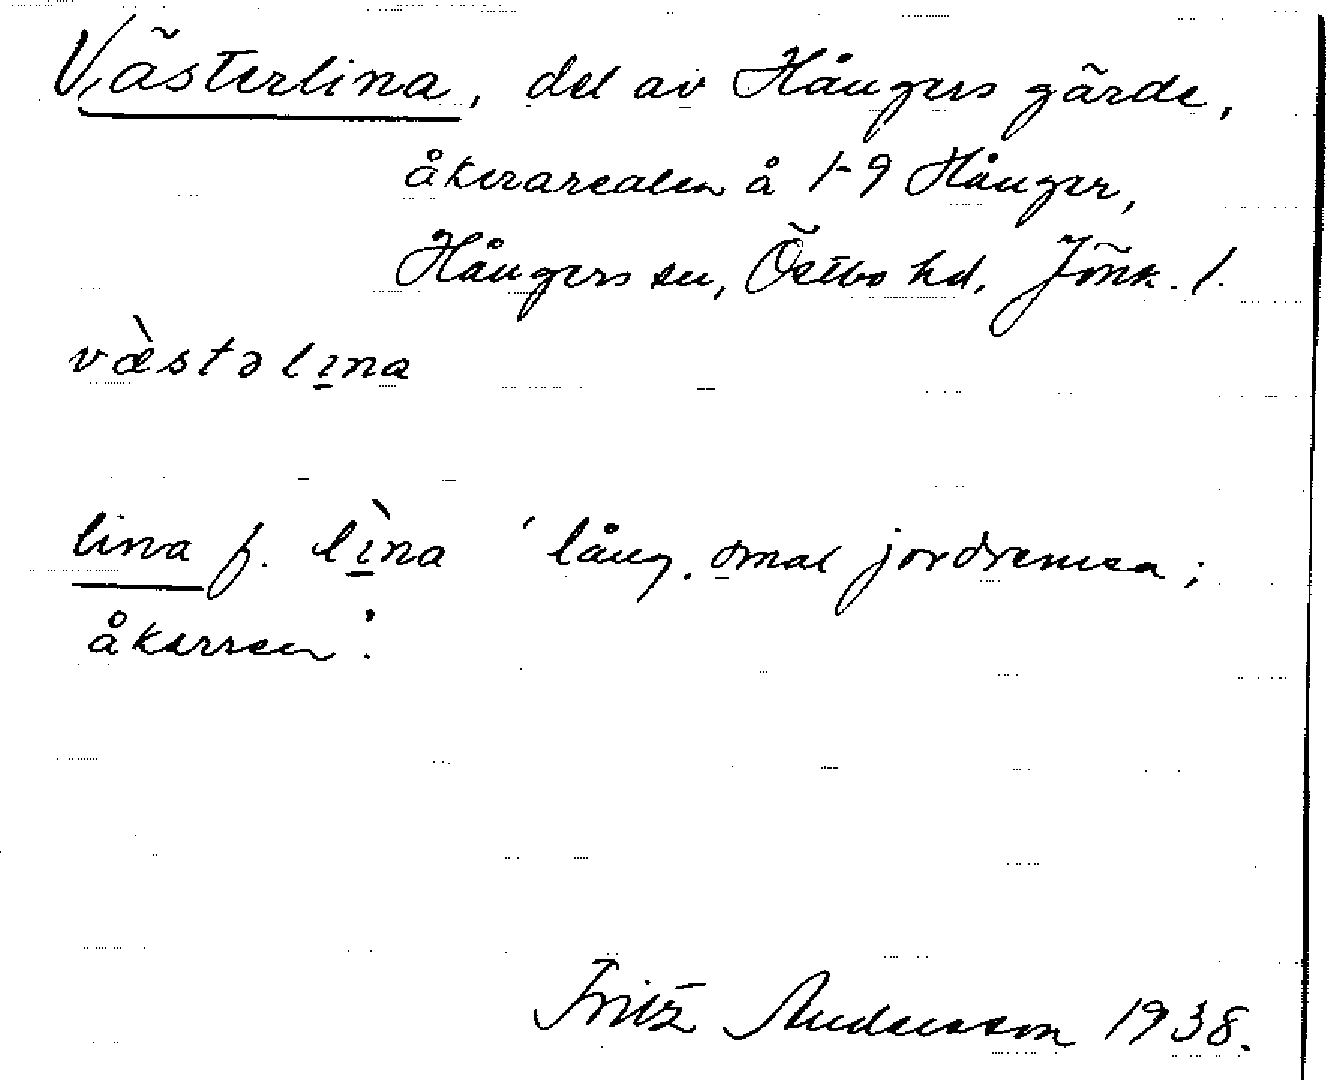 Västerlina, del av Hångers gärde,
åkerarealen å 1-9 Hånger,
Hångers sn, Östbo hd, Jönk. l.
væ̀stəlina
lina f. lìna 'lång, smal jordremsa;
åkerren'.
Fritz Andersson 1938.